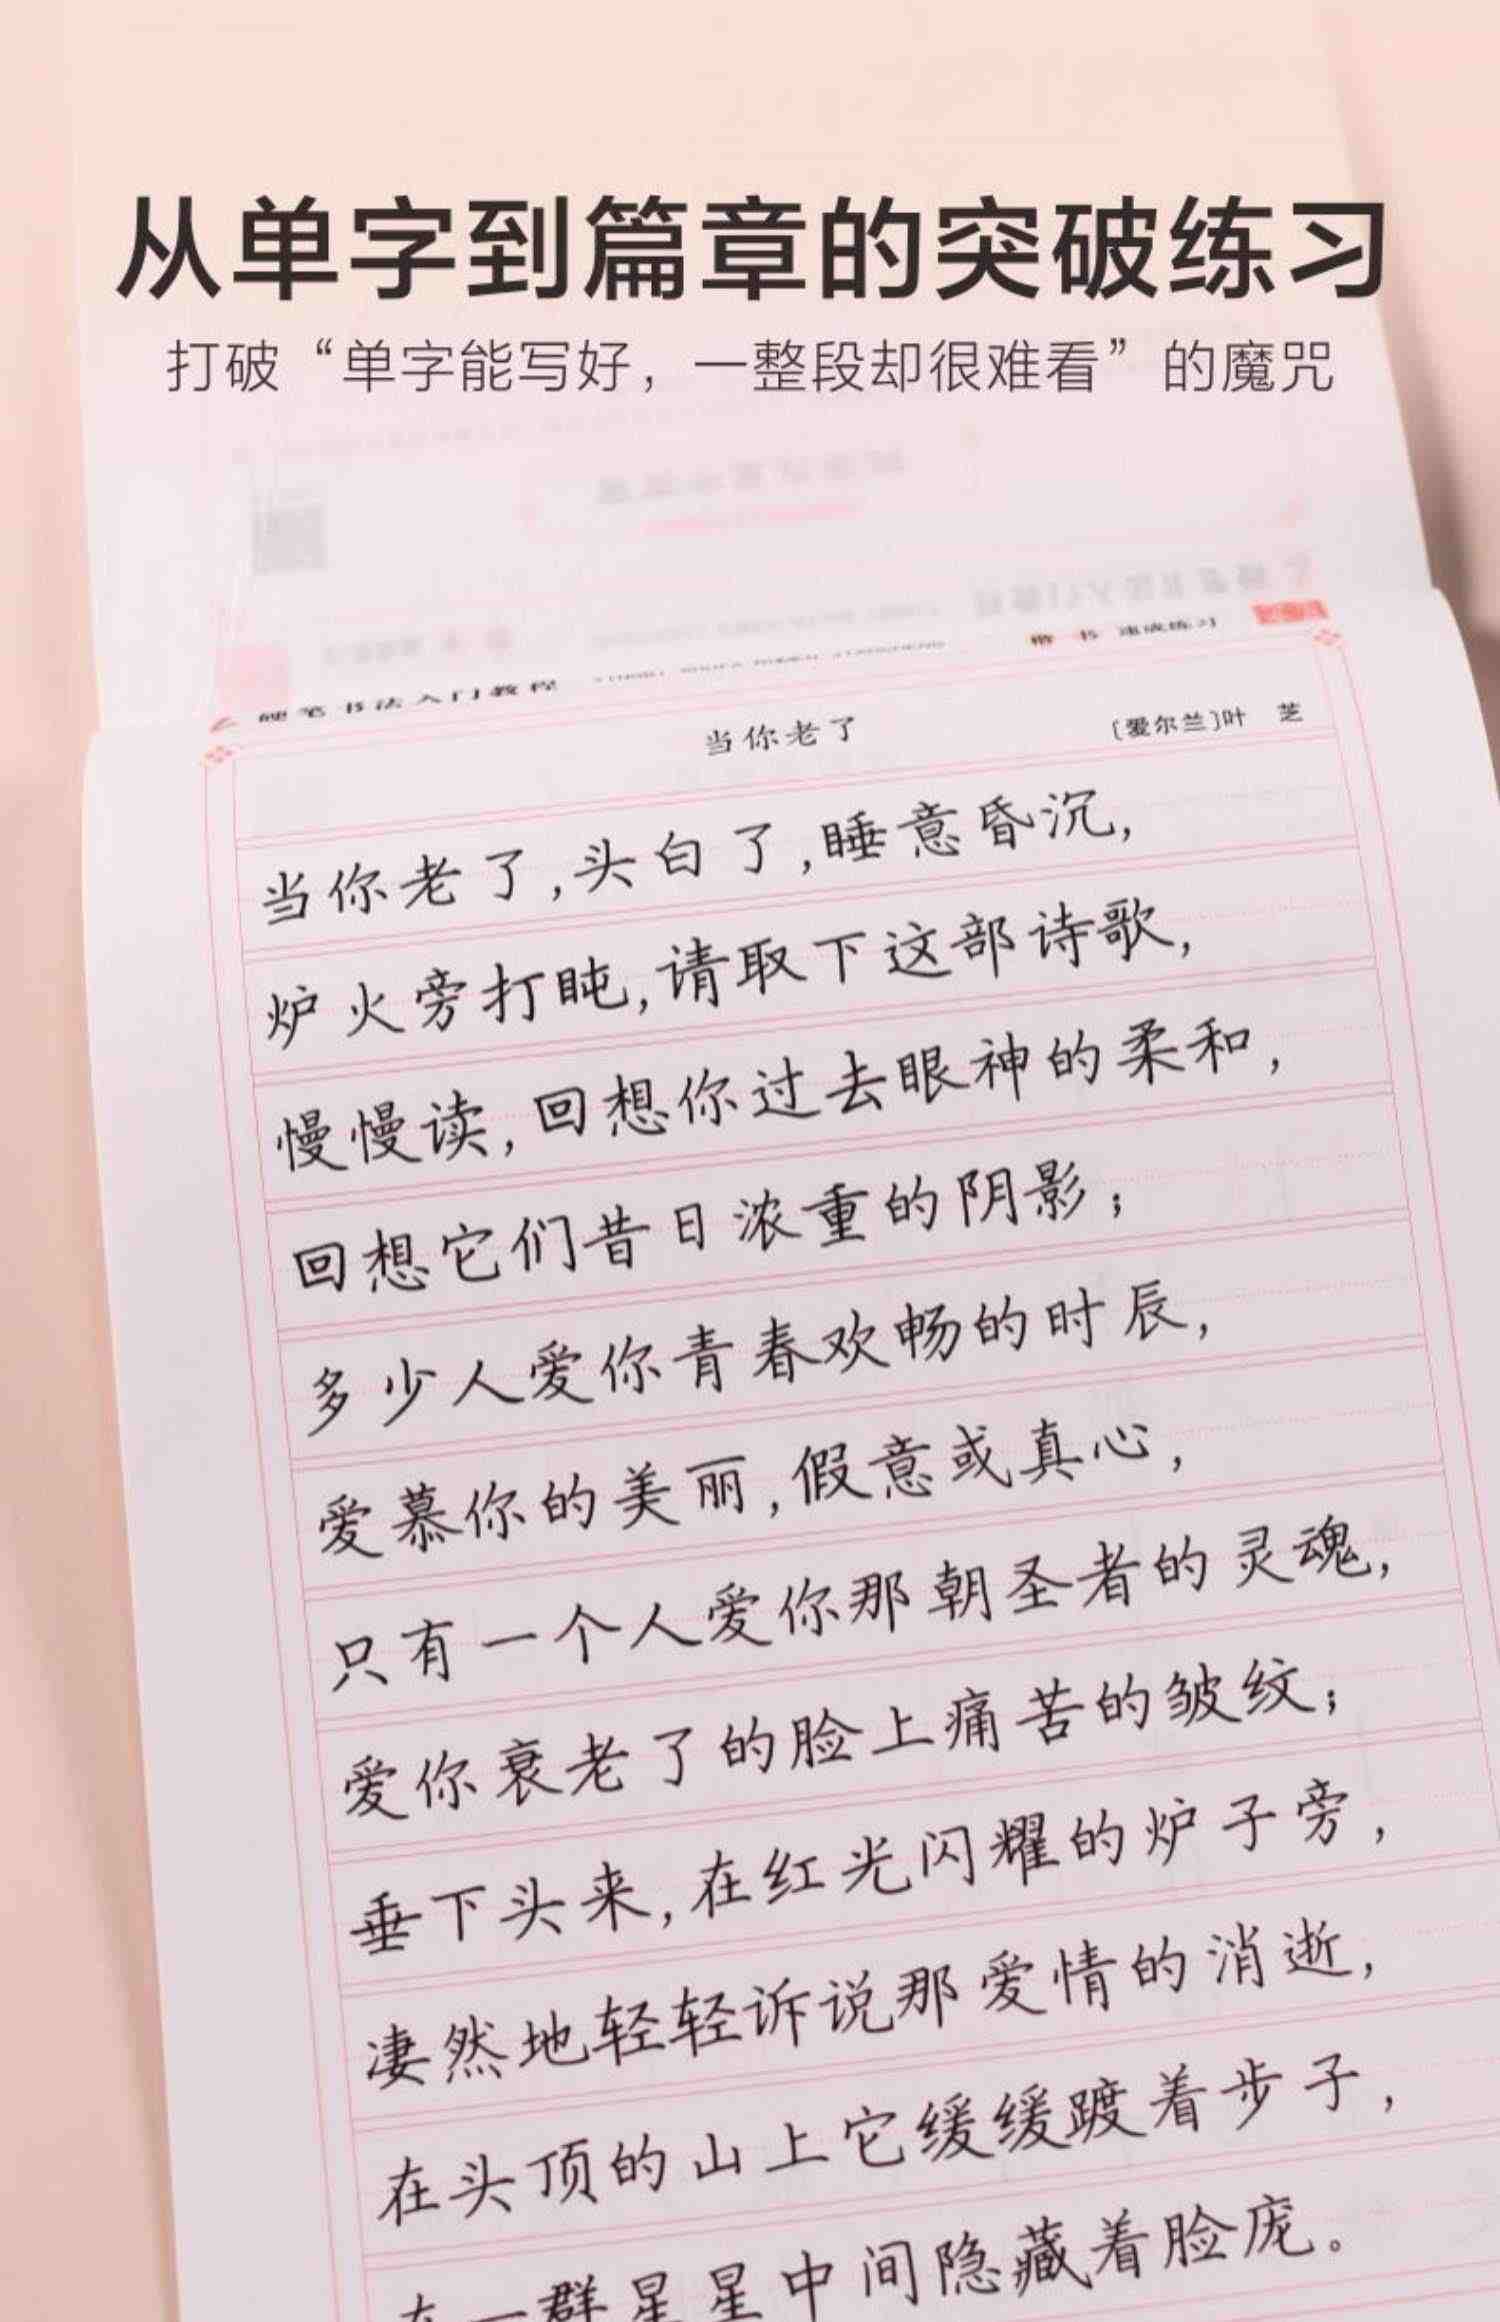 从单字到篇章的突破练习
打破“单字能写好，一整段却很难看”的魔咒
硬笔书法入门教程 楷书 速成练习
当你老了 [爱尔兰]叶 芝
当你老了,头白了,睡意昏沉,
炉火旁打盹,请取下这部诗歌,
慢慢读,回想你过去眼神的柔和,
回想它们昔日浓重的阴影;
多少人爱你青春欢畅的时辰,
爱慕你的美丽,假意或真心,
只有一个人爱你那朝圣者的灵魂,
爱你衰老了的脸上痛苦的皱纹;
垂下头来,在红光闪耀的炉子旁,
凄然地轻轻诉说那爱情的消逝,
在头顶的山上它缓缓踱着步子,
在一群星星中间隐藏着脸庞。